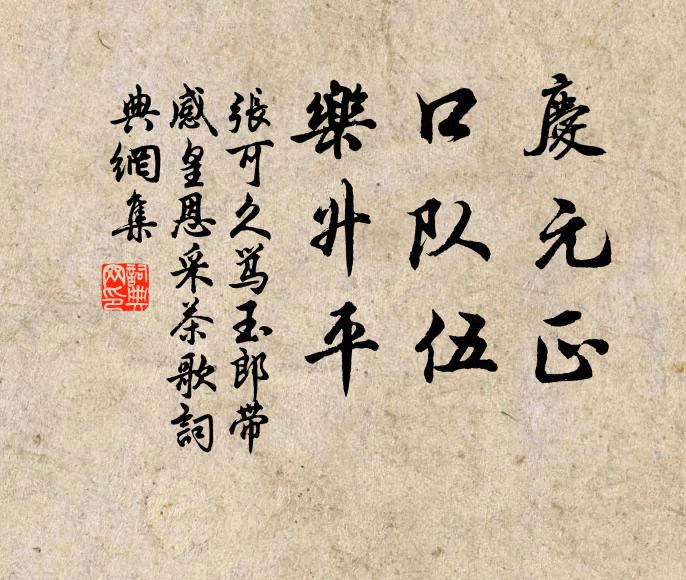 慶元正
口队伍
樂升平
張可久骂玉郎带
感皇恩采茶歌詞
典網集
詞典网印